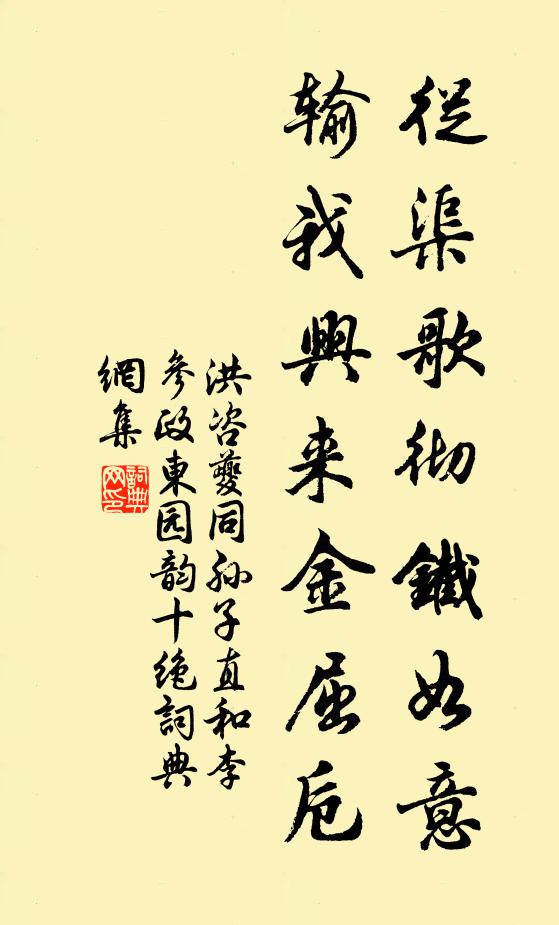 從渠歌彻鐵如意
输我興来金屈卮
洪咨夔同孙子直和李
参政東园韵十绝詞典
網集
詞典
网印